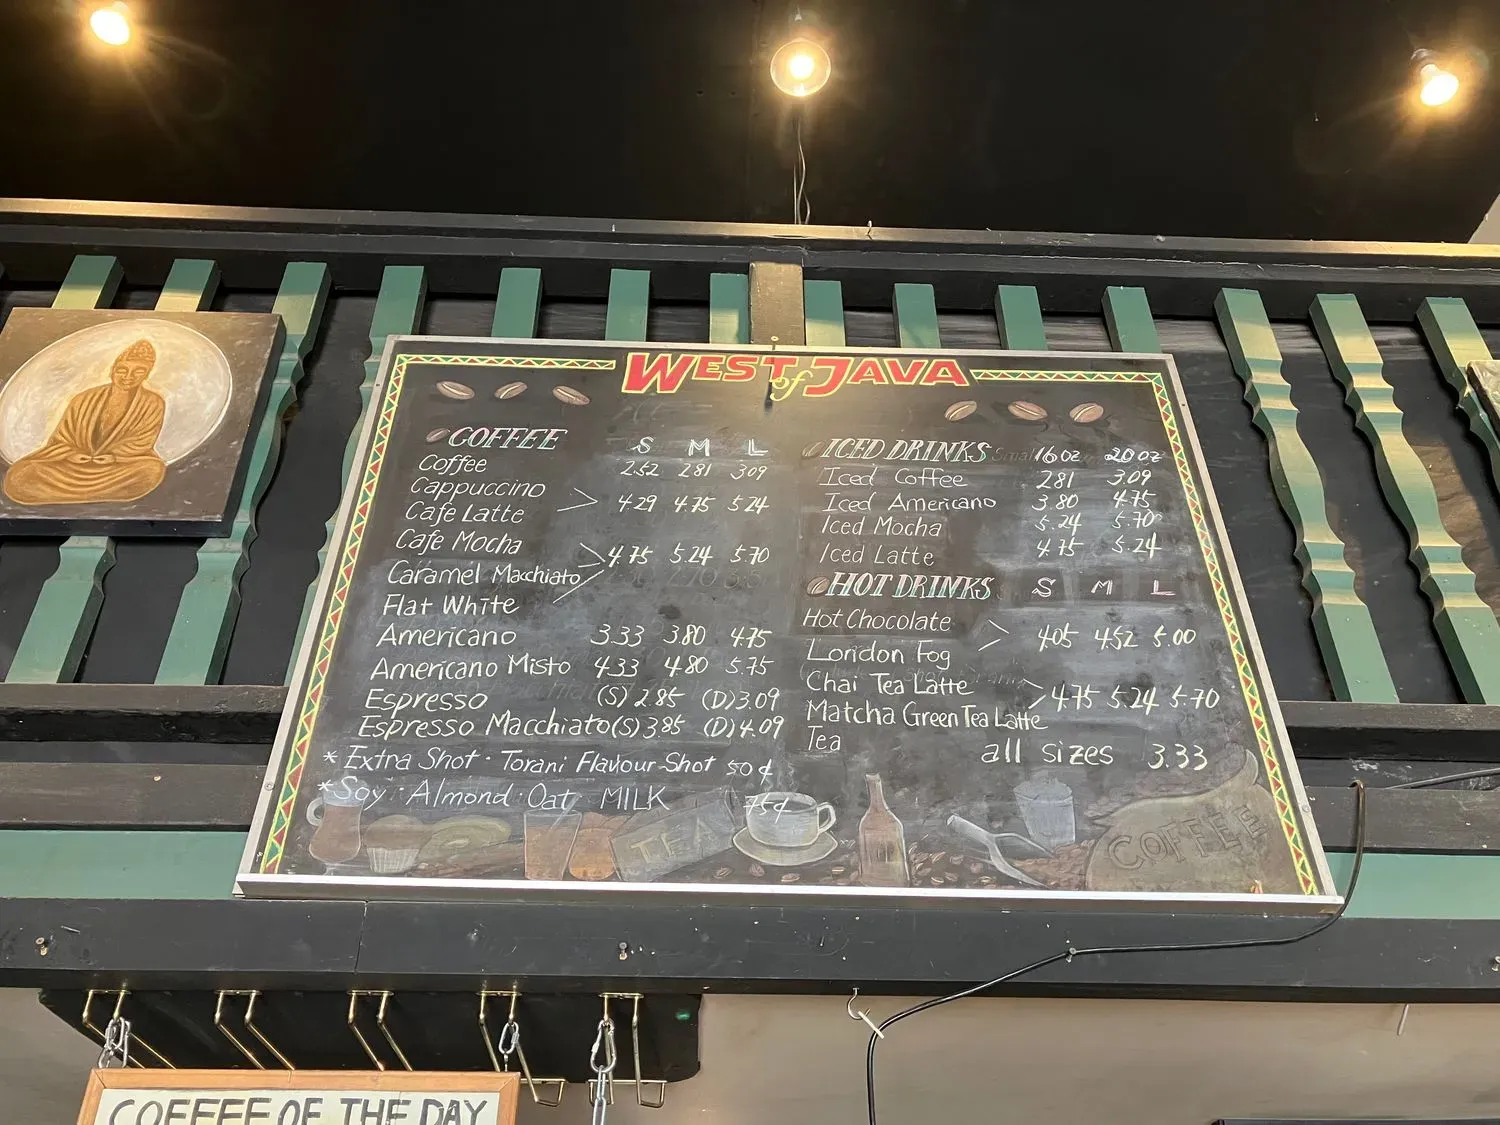 WEST of JAVA
COFFEE S M L
Coffee 2.52 2.81 3.09
Cappuccino
Cafe Latte 4.29 4.75 5.24
Cafe Mocha
Caramel Macchiato 4.75 5.24 5.70
Flat White
Americano 3.33 3.80 4.75
Americano Misto 4.33 4.80 5.75
Espresso (S) 2.85 (D) 3.09
Espresso Macchiato (S) 3.85 (D) 4.09
* Extra Shot · Torani Flavour Shot 50¢
* Soy · Almond · Oat MILK 75¢
ICED DRINKS 16oz 20oz
Iced Coffee 2.81 3.09
Iced Americano 3.80 4.75
Iced Mocha 5.24 5.70
Iced Latte 4.75 5.24
HOT DRINKS S M L
Hot Chocolate
London Fog 4.05 4.52 5.00
Chai Tea Latte
Matcha Green Tea Latte 4.75 5.24 5.70
Tea all sizes 3.33
TEA
COFFEE
COFFEE OF THE DAY